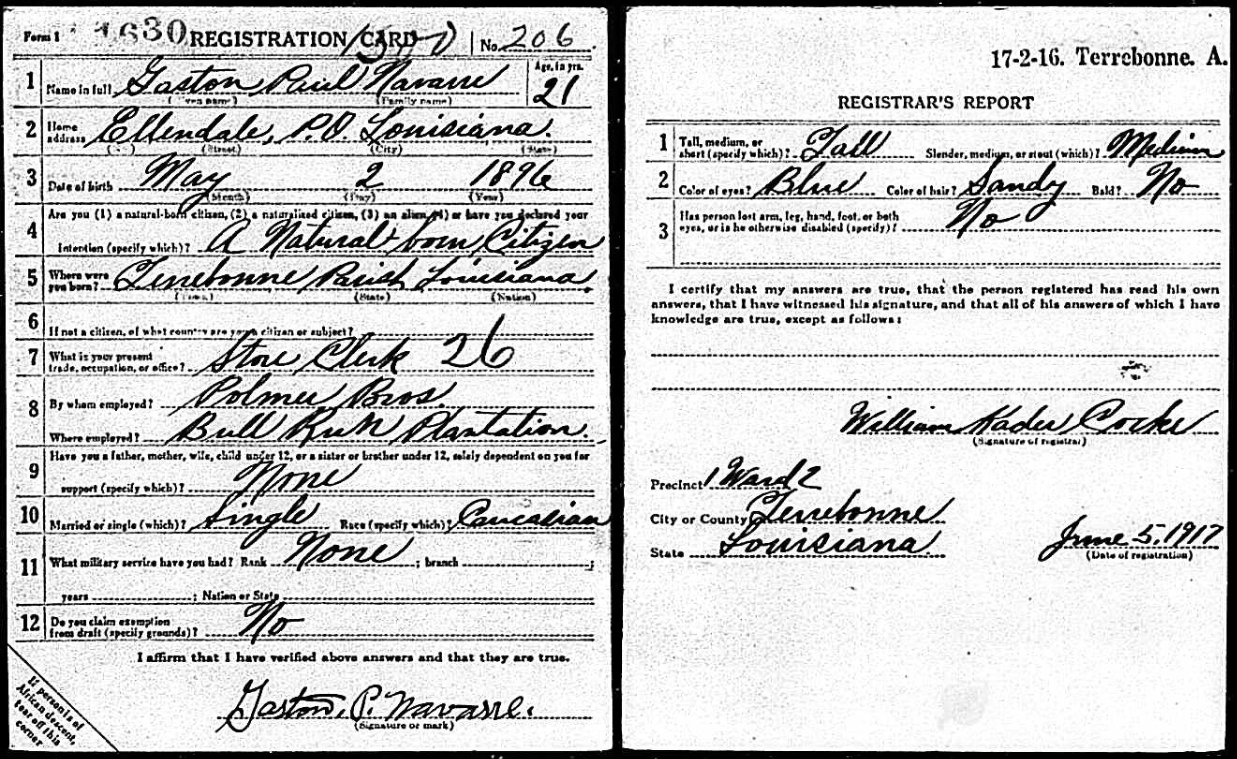 Form 1 1630 REGISTRATION CARD No. 206
1 Name in full Gaston Paul Navarre Age, in yrs. 21
(Given name) (Family name)
2 Home address Ellendale, P.O. Louisiana.
(No.) (Street) (City) (State)
3 Date of birth May 2 1896
(Month) (Day) (Year)
4 Are you (1) a natural-born citizen, (2) a naturalized citizen, (3) an alien, (4) or have you declared your
intention (specify which)? A Natural-born Citizen
5 Where were you born? Terrebonne Parish Louisiana.
(Town) (State) (Nation)
6 If not a citizen, of what country are you a citizen or subject?
7 What is your present trade, occupation, or office? Store Clerk 26
8 By whom employed? Polmer Bros
Where employed? Bull Run Plantation.
9 Have you a father, mother, wife, child under 12, or a sister or brother under 12, solely dependent on you for
support (specify which)? None
10 Married or single (which)? Single Race (specify which)? Caucasian
11 What military service have you had? Rank None ; branch ;
years ; Nation or State
12 Do you claim exemption from draft (specify grounds)? No
I affirm that I have verified above answers and that they are true.
Gaston. P. Navarre.
(Signature or mark)
If person is of
African descent,
tear off this
corner
17-2-16. Terrebonne. A.
REGISTRAR'S REPORT
1 Tall, medium, or short (specify which)? Tall Slender, medium, or stout (which)? Medium
2 Color of eyes? Blue Color of hair? Sandy Bald? No
3 Has person lost arm, leg, hand, foot, or both
eyes, or is he otherwise disabled (specify)? No
I certify that my answers are true, that the person registered has read his own
answers, that I have witnessed his signature, and that all of his answers of which I have
knowledge are true, except as follows:
William Kader Cocke
(Signature of registrar)
Precinct 1 Ward 2
City or County Terrebonne
State Louisiana. June 5. 1917
(Date of registration)